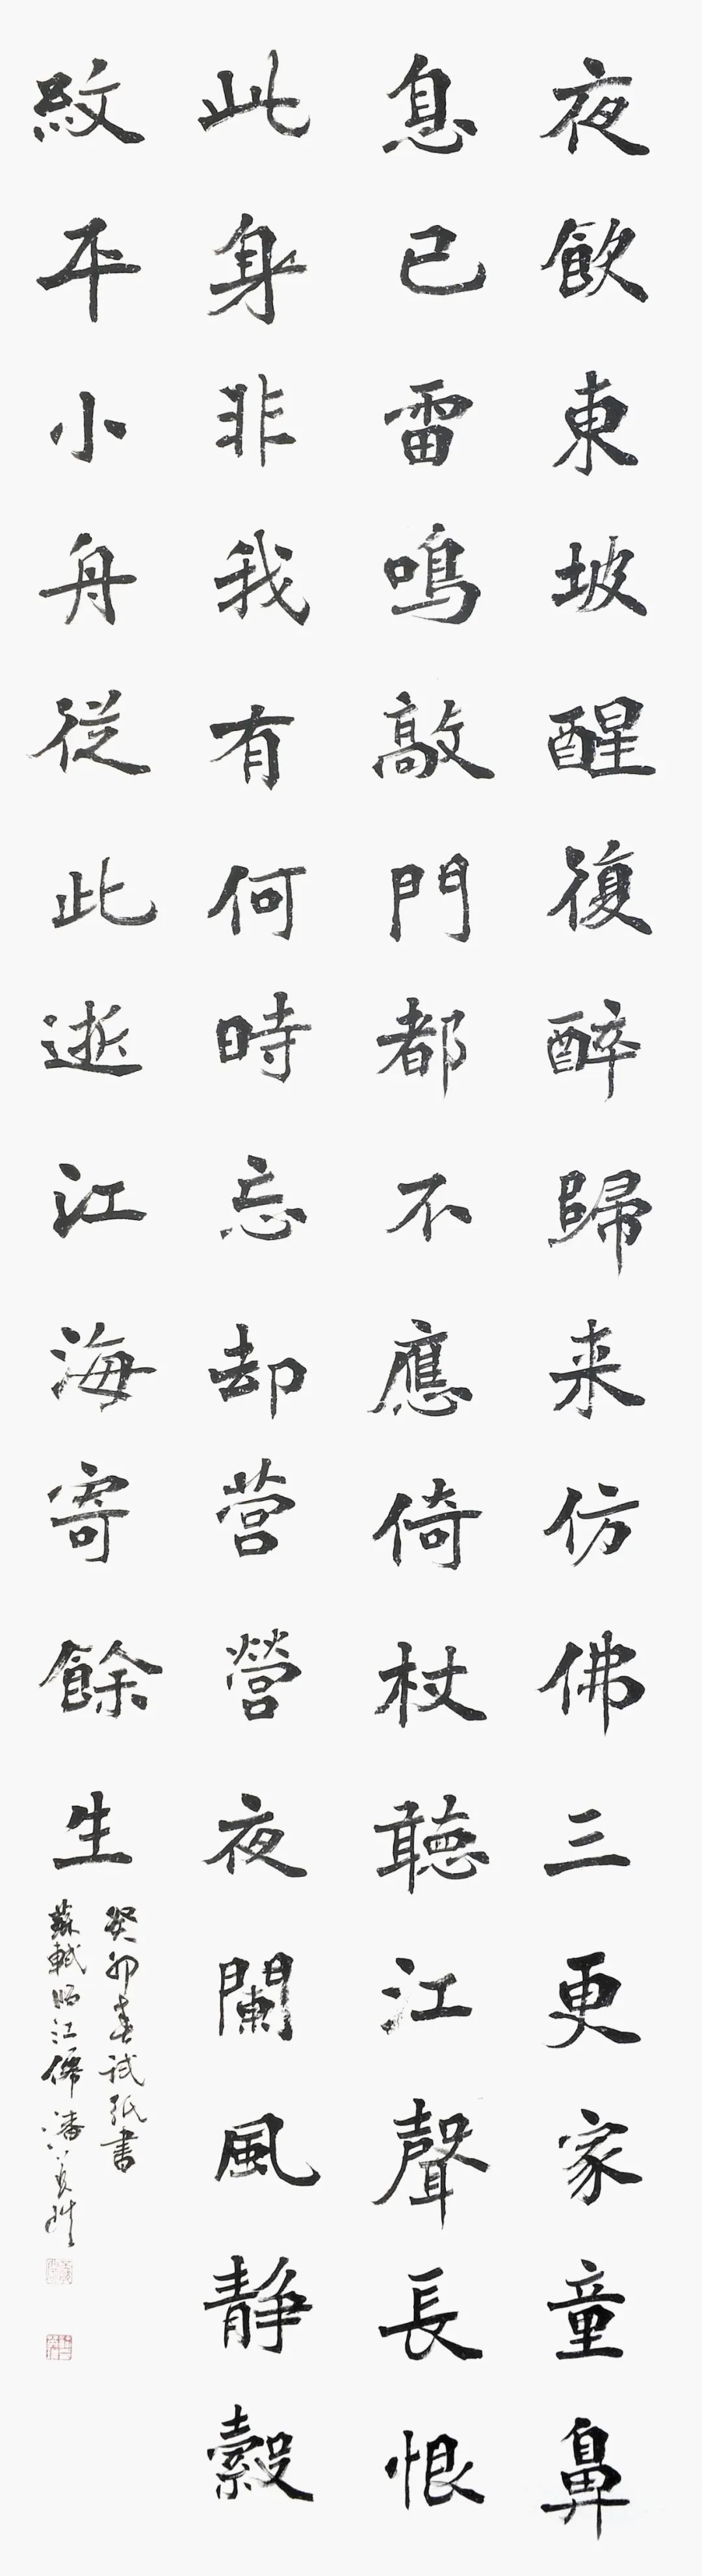 夜飲東坡醒復醉歸来仿佛三更家童鼻
息已雷鳴敲門都不應倚杖聽江聲長恨
此身非我有何時忘却营營夜闌風静縠
紋平小舟從此逝江海寄餘生
癸卯春試紙書
蘇軾臨江仙潘